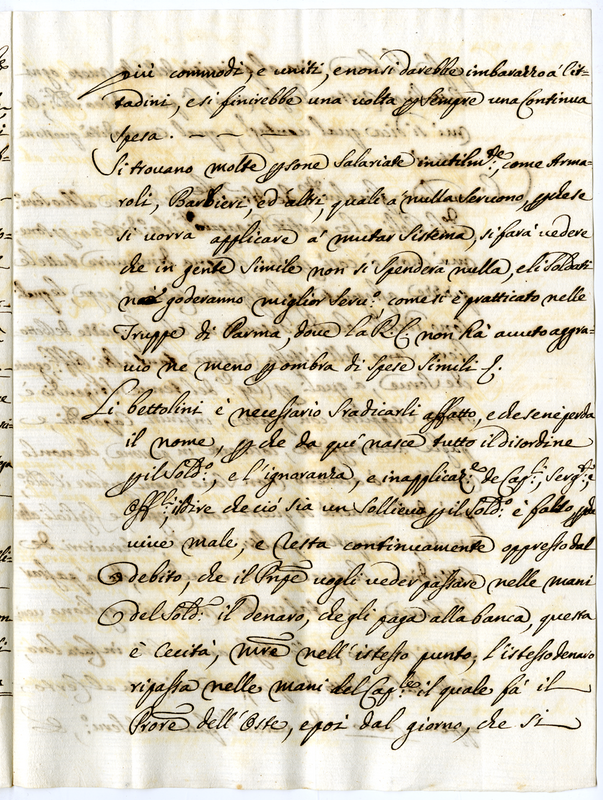 più commodi, e uniti, e non si darebbe imbarazzo à Cit-
tadini, e si finirebbe una volta p sempre una Continua
spesa. — — —
Si trovano molte psone Salariate inutilm.te, come Arma-
roli, Barbieri, ed altri, quali à nulla servono, p che se
si vorrà applicare à mutar Sistema, si farà vedere
che in gente simile non si spenderà nulla, e li Soldati
ne goderanno miglior Serv.o come si è pratticato nelle
Truppe di Parma, dove la R. C. non hà avuto aggra-
vio ne meno p ombra di Spese Simili
Li bettolini è necessario Sradicarli affatto, e che se ne perda
il nome, p che da qué nasce tutto il disordine
p il Sold.o, e l'ignoranza, e inapplicaz.e de Cap.li, Serg.ti, e
Off.li, il dire che ciò sia un Sollievo p il Sold.o è falso p che
vive male, e resta continuamente oppresso dal
debito, che il Pnpe vogli veder passare nelle mani
del Sold.o il denaro, che gli paga alla banca, questa
è Cecità, mre nell'istesso punto, l'istesso denaro
ripassa nelle mani del Cap.le il quale fà il
Prore dell'Oste, e poi dal giorno, che si